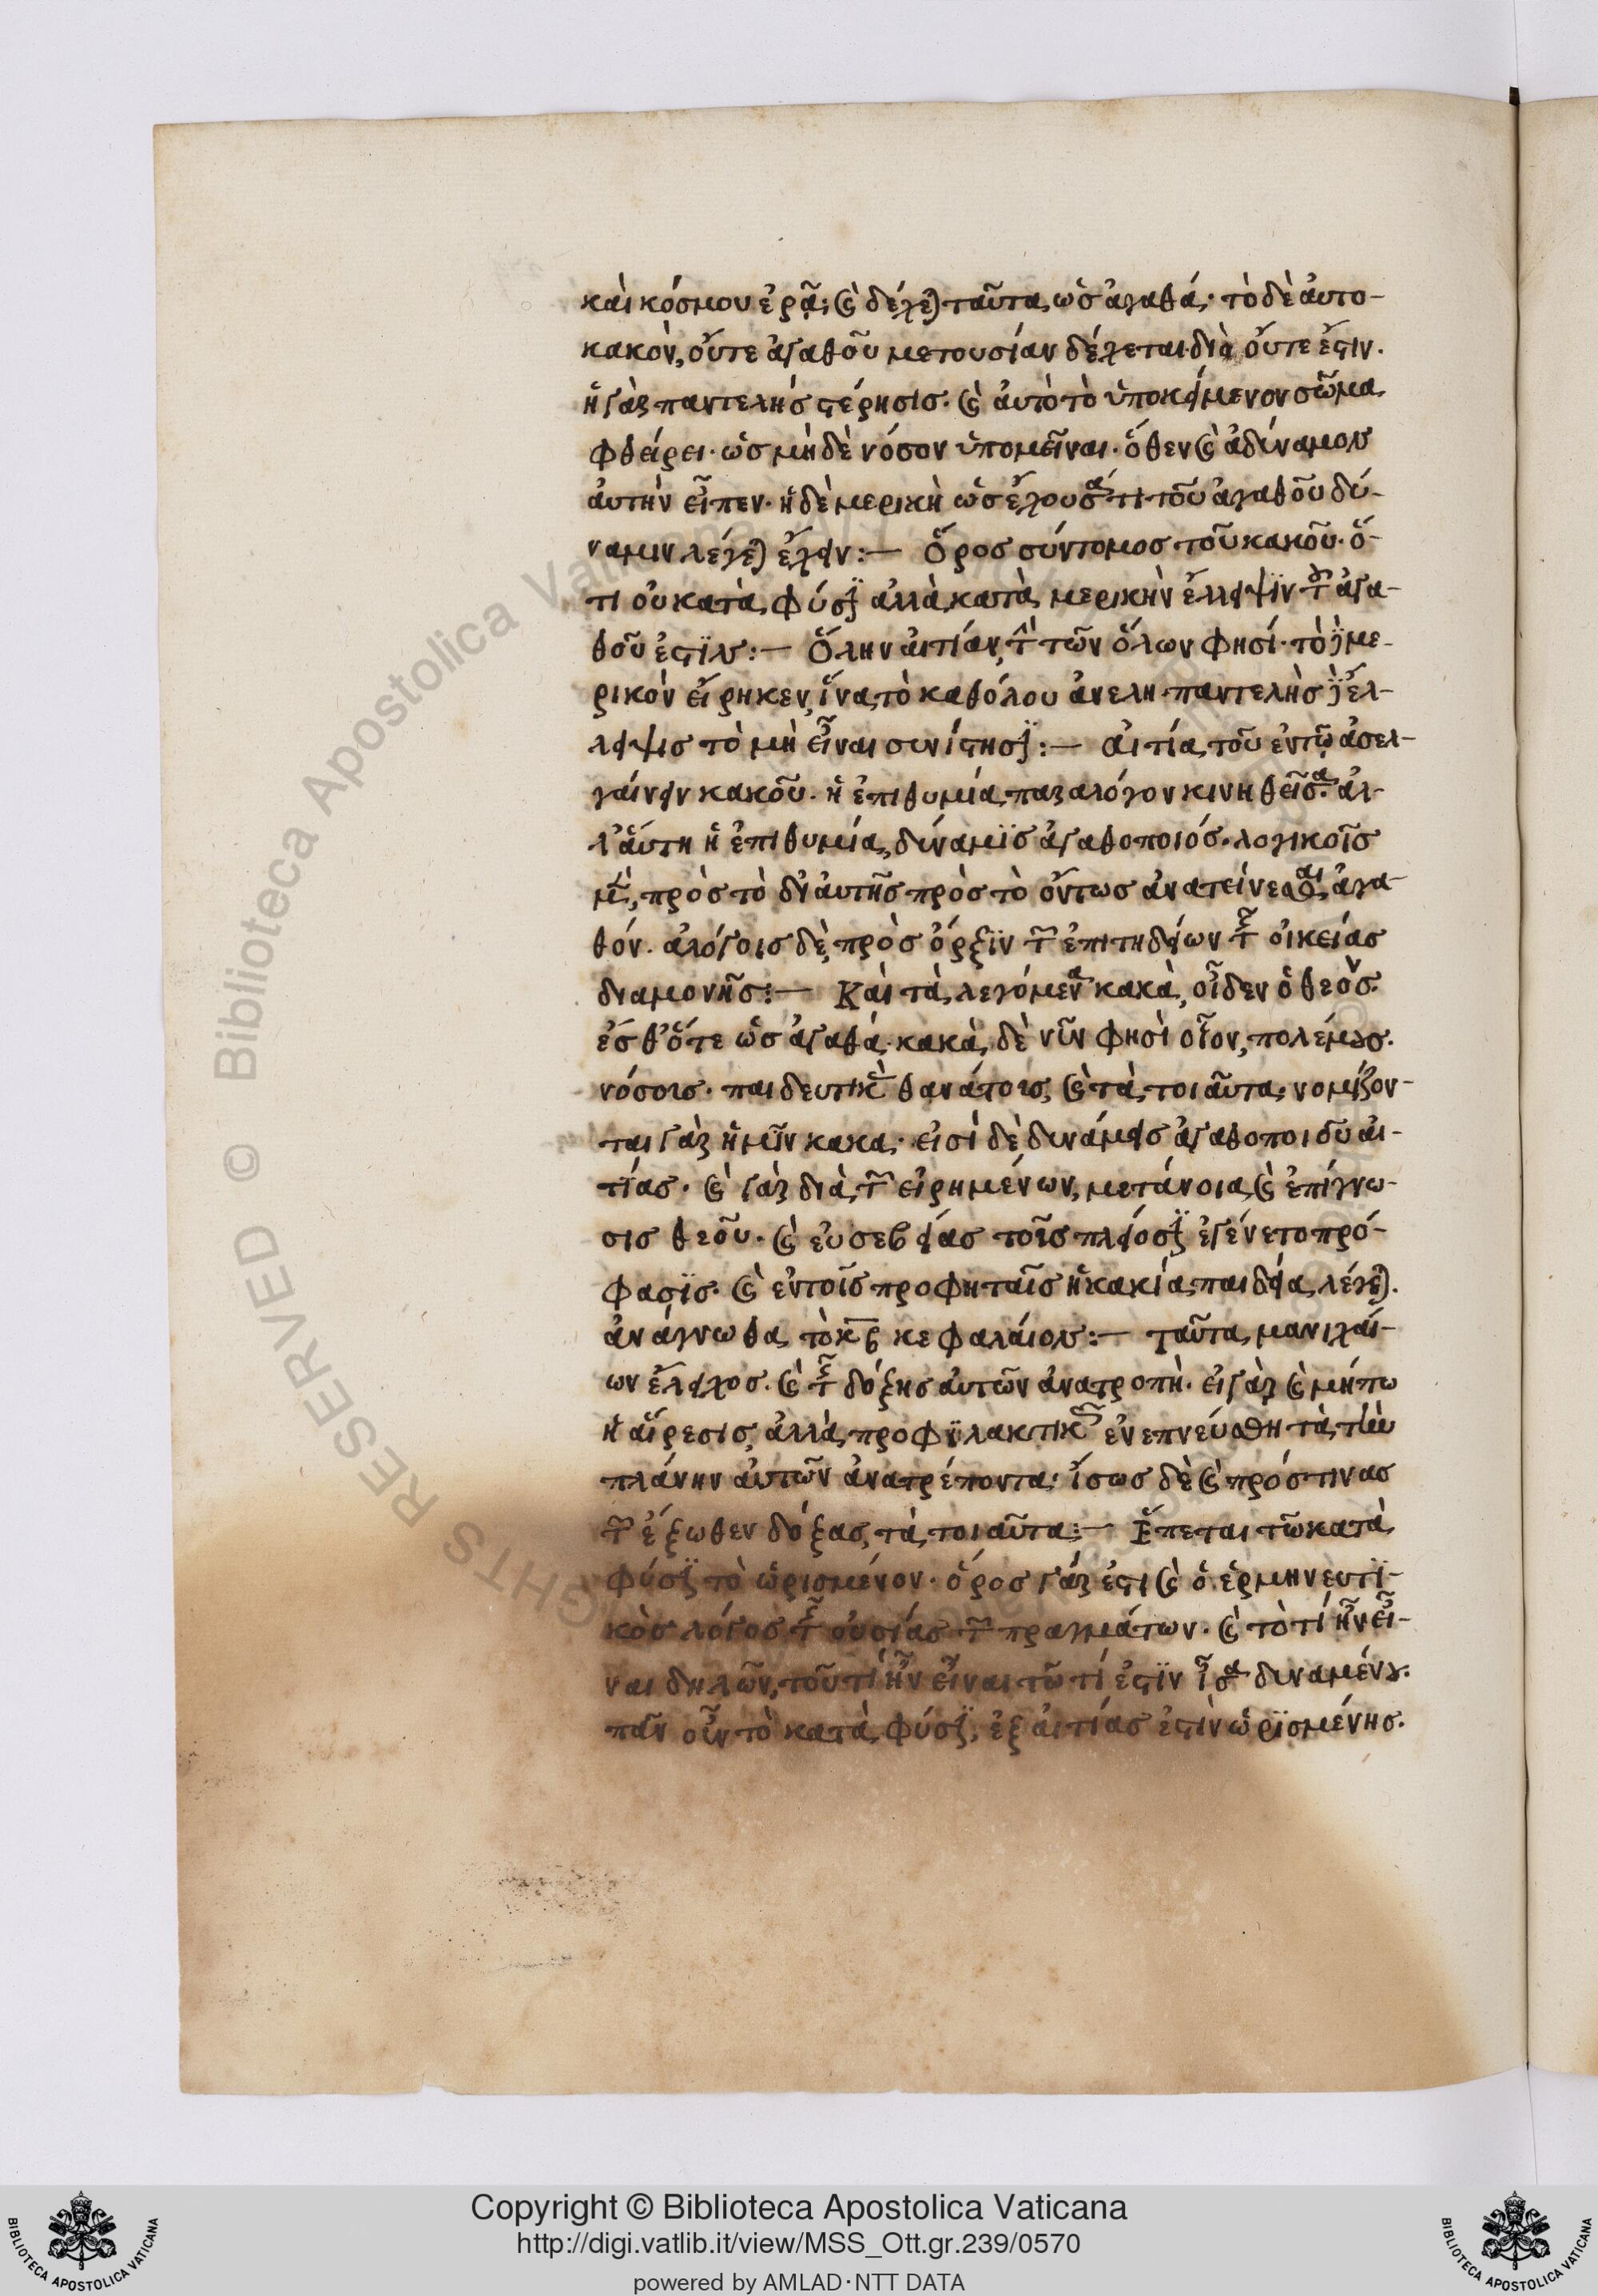 καὶ κόσμου ἐρᾷ; καὶ δέχεται ταῦτα, ὡς ἀγαθά· τὸ δὲ ἀυτο-
κακὸν, οὔτε ἀγαθοῦ μετουσίαν δέχεται· διὸ οὔτε ἔστιν.
ἡ γὰρ παντελὴς στέρησις. καὶ ἀυτὸ τὸ ὑποκείμενον σῶμα
φθείρει· ὡς μὴ δὲ νόσον ὑπομεῖναι· ὅθεν καὶ ἀδύναμον
ἀυτὴν εἶπεν· ἡ δὲ μερικὴ ὡς ἔχουσά τι τοῦ ἀγαθοῦ δύ-
ναμιν λέγεται ἔχειν :— Ὅρος σύντομος τοῦ κακοῦ· ὅ-
τι οὐ κατὰ φύσιν ἀλλὰ κατὰ μερικὴν ἔλλειψιν τοῦ ἀγα-
θοῦ ἐστιν :— Ὅλην ἀιτίαν, τὴν τῶν ὅλων φησί· τὸ γὰρ με-
ρικὸν εἴρηκεν, ἵνα τὸ καθόλου ἀνελη· παντελὴς γὰρ ἔλ-
λειψις τὸ μὴ εἶναι συνίστησιν :— ἀιτία τοῦ ἐν τῷ ἀσελ-
γαίνειν κακοῦ· ἡ ἐπιθυμία παραλόγον κινηθεῖσα. ἀλ-
λ' ἀύτη ἡ ἐπιθυμία, δύναμις ἀγαθοποιός· λογικοῖς
μὲν, πρὸς τὸ δι' ἀυτῆς πρὸς τὸ ὄντως ἀνατείνεσθαι ἀγα-
θόν· ἀλόγοις δὲ, πρὸς ὄρεξιν τῶν ἐπιτηδείων τῆς οἰκείας
διαμονῆς :— Καὶ τὰ λεγόμενα κακὰ, οἶδεν ὁ θεὸς.
ἐσθ' ὅτε ὡς ἀγαθά· κακὰ δὲ νῦν φησὶ οἷον, πολέμοις.
νόσοις· παιδευτικοὺς θανάτοις, καὶ τὰ τοιαῦτα· νομίζον-
ται γὰρ ἡμῖν κακα· εἰσὶ δὲ δυνάμεις ἀγαθοποιοῦ ἀι-
τίας· καὶ γὰρ διὰ τῶν εἰρημένων, μετάνοια καὶ ἐπίγνω-
σις θεοῦ· καὶ ἐυσεβείας τοῖς πλείοσιν ἐγένετο πρό-
φασις· καὶ ἐν τοῖς προφήταις ἡ κακία παιδεία λέγεται.
ἀνάγνωθι τὸ κβ κεφαλάιον :— ταῦτα μανιχάι-
ων ἔλεγχος. καὶ τῆς δόξης ἀυτῶν ἀνατροπὴ· εἰ γὰρ καὶ μήπω
ἡ αἵρεσις, ἀλλὰ προφυλακτικῶς ἐνεπνεύσθη τὰ τὴν
πλάνην ἀυτῶν ἀνατρέποντα· ἴσως δὲ καὶ πρός τινας
τῶν ἔξωθεν δόξας, τὰ τοιαῦτα :— Ἕπεται τῶ κατὰ
φύσιν τὸ ὡρισμένον· ὅρος γάρ ἐστι καὶ ὁ ἑρμηνευτι-
κὸς λόγος τῆς οὐσίας τῶν πραγμάτων· καὶ τὸ τί ἦν εἶ-
ναι δηλῶν, τοῦ τί ἦν εἶναι τῶ τί ἐστιν ἴσα δυναμένου.
πᾶν οὖν τὸ κατὰ φύσιν, ἐξ ἀιτίας ἐστὶν ὡρισμένης.
Copyright © Biblioteca Apostolica Vaticana
http://digi.vatlib.it/view/MSS_Ott.gr.239/0570
powered by AMLAD·NTT DATA